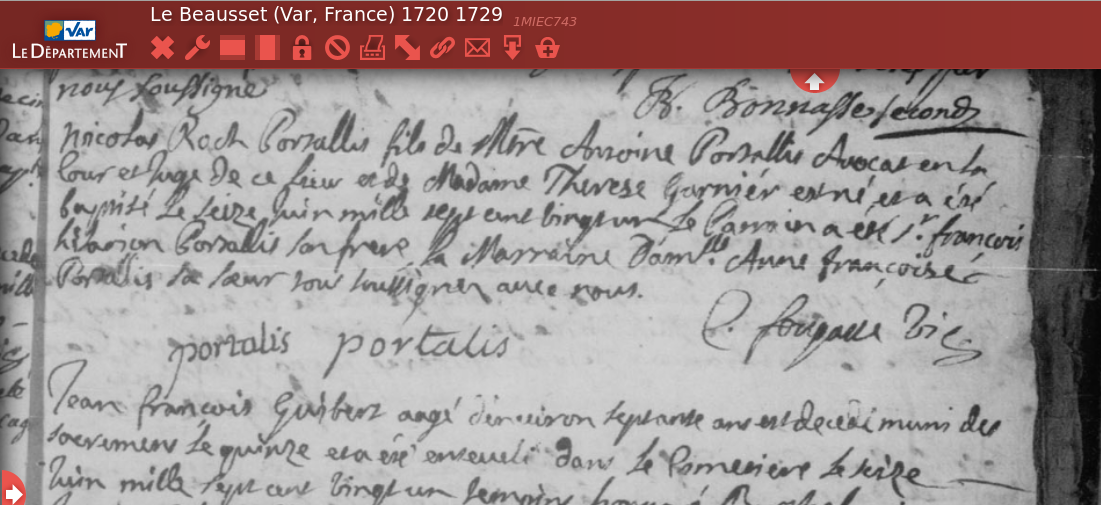 Le Beausset (Var, France) 1720 1729 1MIEC743
VAR
LE DÉPARTEMENT
nous soussigné
B. Bonnasse second
Nicolas Roch Portallis fils de Mtre Antoine Portallis Avocat en la
Cour et Juge de ce lieu et de Madame Therese Garniér est né et a été
baptisé le seize Juin mille sept cent vingt un Le Parrin a été Sr. françois
hilarion Portallis son frere la Marraine Damlle Anne françoise
Portallis sa sœur tous soussignés avec nous.
portalis portalis
fougasse Vic
Jean françois Guibert aagé d'environ septante ans est decedé muni des
sacremens le quinze et a été enseveli dans le Cimetiere le seize
Juin mille sept cent vingt un temoins